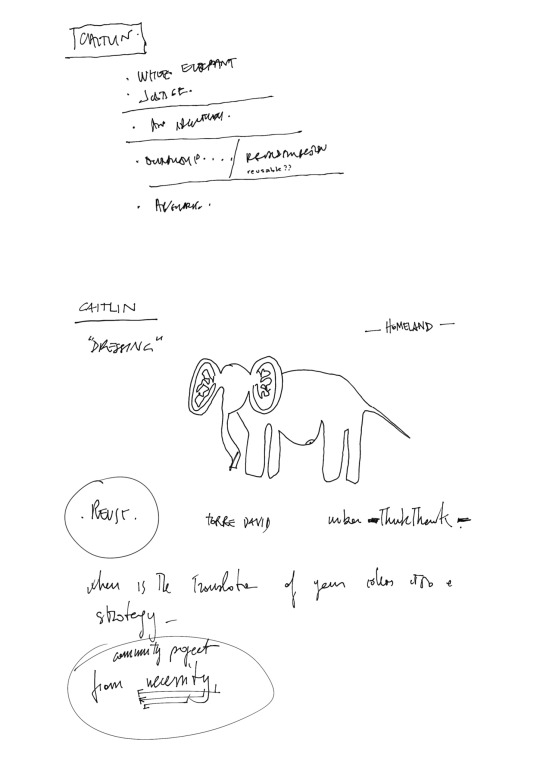 CAITLIN.
· WHITE ELEPHANT
· JUSTICE.
· OWNERSHIP.... /
reusable??
· AVERAGE.
CAITLIN
"DRESSING"
— HOMELAND —
· REUSE.
TORRE DAVID
urban - ThinkThank -
where is the Translation of your ideas into a
strategy -
community project
from necessity